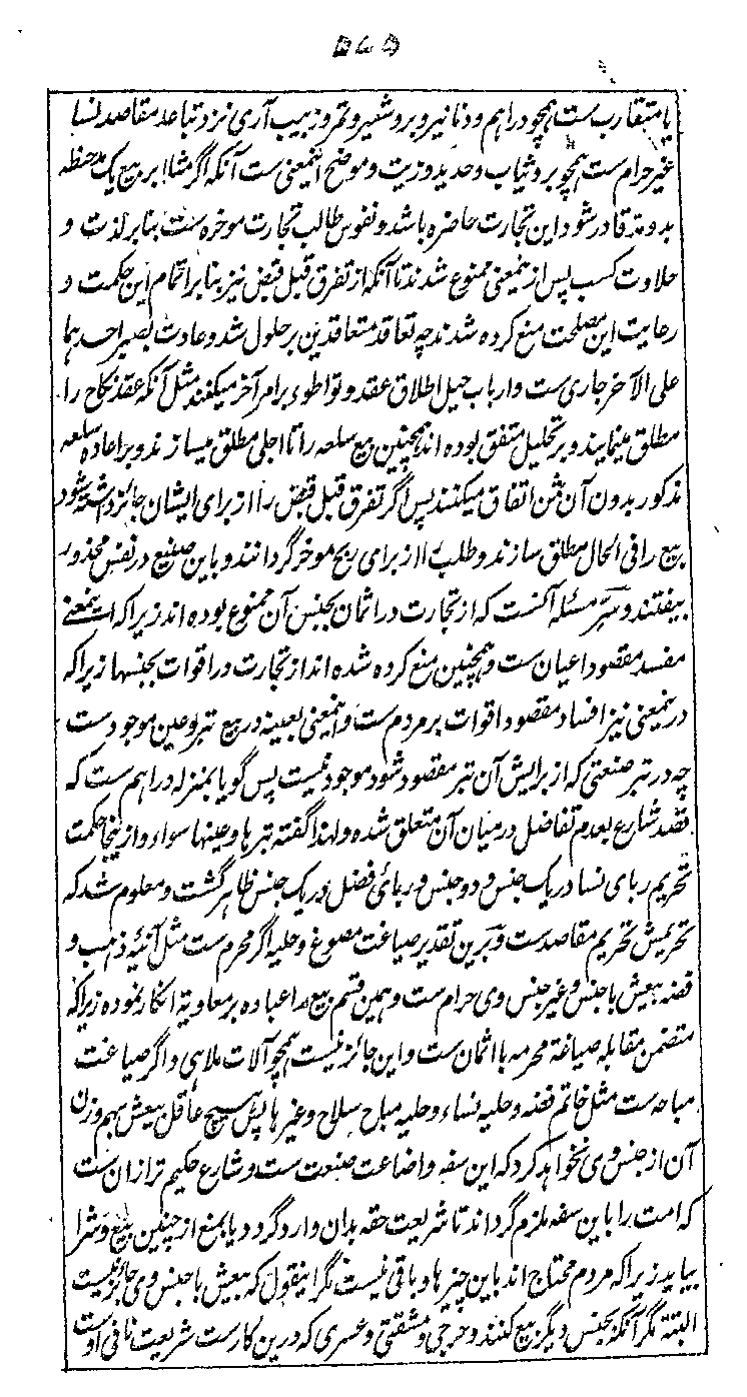 ۵۷۵
یا متقارب ست همچو دراهم و دنانیر و برو شعیر و تمر و زبیب آری نزد تباعد مقاصد نسا
غیر حرام ست همچو بر و ثیاب و حدید و زیت و موضح اینمعنی ست آنکه اگر مثلا بر بیع یک مد حنطه
بدو مد قادر شود این تجارت حاضره باشد و نفوس طالب تجارت موخره ست بنابر لذت و
حلاوت کسب پس ازینمعنی ممنوع شدند تا آنکه از تفرق قبل قبض نیز بنابر اتمام این حکمت و
رعایت این مصلحت منع کرده شدند چه تعاقد متعاقدین بر حلول شد و عادت بصبر احدهما
علی الآخر جاری ست و ارباب حیل اطلاق عقد و تواطو برامر آخر میکنند مثل آنکه عقد نکاح را
مطلق مینمایند و بر تحلیل متفق بوده اند همچنین بیع سلعه را تا اجلی مطلق میسازند و بر اعاده سلعه
مذکور بدون آن ثمن اتفاق میکنند پس اگر تفرق قبل قبض را از برای ایشان جائز داشته شود
بیع را فی الحال مطلق سازند و طلب را از برای ربح موخر گردانند و باین صنیع در نفس محذور
بیفتند و سر مسئله آنست که از تجارت در اثمان بجنس آن ممنوع بوده اند زیرا که اینمعنی
مفسد مقصود اعیان ست و همچنین منع کرده شده اند از تجارت در اقوات بجنسها زیرا که
درینمعنی نیز افساد مقصود اقوات بر مردم ست و اینمعنی بعینه در بیع تبر و عین موجود ست
چه در تبر صنعتی که از برایش آن تبر مقصود شود موجود نیست پس گویا بمنزله دراهم ست که
قصد شارع بعدم تفاضل در میان آن متعلق شده و لهذا گفته تبرها و عینها سواء و ازینجا حکمت
تحریم ربای نسا در یک جنس و دو جنس و ربائی فضل در یک جنس ظاهر گشت و معلوم شد که
تحریمش تحریم مقاصد ست و برین تقدیر صیاغت مصوغ و حلیه اگر محرم ست مثل آنیه ذهب و
فضه بیعش با جنس و غیر جنس وی حرام ست و همین قسم بیع را عباده بر معاویة انکار نموده زیرا که
متضمن مقابله صیاغة محرمه با اثمان ست و این جائز نیست همچو آلات ملاهی و اگر صیاغت
مباحه ست مثل خاتم فضه و حلیه نساء و حلیه مباح سلاح و غیرها پس هیچ عاقل بیعش بهم وزن
آن از جنس وی نخواهد کرد که این سفه و اضاعت صنعت ست و شارع حکیم تر ازان ست
که امت را باین سفه ملزم گرداند تا شریعت حقه بدان وارد گردد یا بمنع از چنین بیع و شرا
بیاید زیرا که مردم محتاج اند باین چیزها و باقی نیست مگر اینقول که بیعش با جنس وی جائز نیست
البتة مگر آنکه بجنس دیگر بیع کنند و حرجی و مشقتی و عسری که درین کار ست شریعت نافی اوست